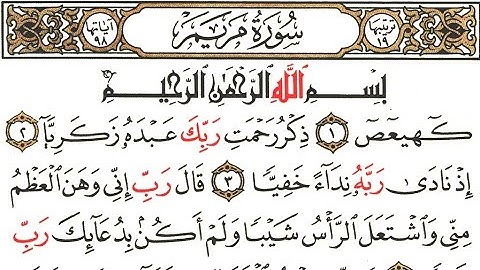 ترتيبها ١٩ سُورَةُ مَرْيَمَ آياتها ٩٨
بِسْمِ اللَّهِ الرَّحْمَٰنِ الرَّحِيمِ
كٓهيعٓصٓ ١ ذِكْرُ رَحْمَتِ رَبِّكَ عَبْدَهُۥ زَكَرِيَّآ ٢
إِذْ نَادَىٰ رَبَّهُۥ نِدَآءً خَفِيًّا ٣ قَالَ رَبِّ إِنِّى وَهَنَ ٱلْعَظْمُ
مِنِّى وَٱشْتَعَلَ ٱلرَّأْسُ شَيْبًا وَلَمْ أَكُنۢ بِدُعَآئِكَ رَبِّ